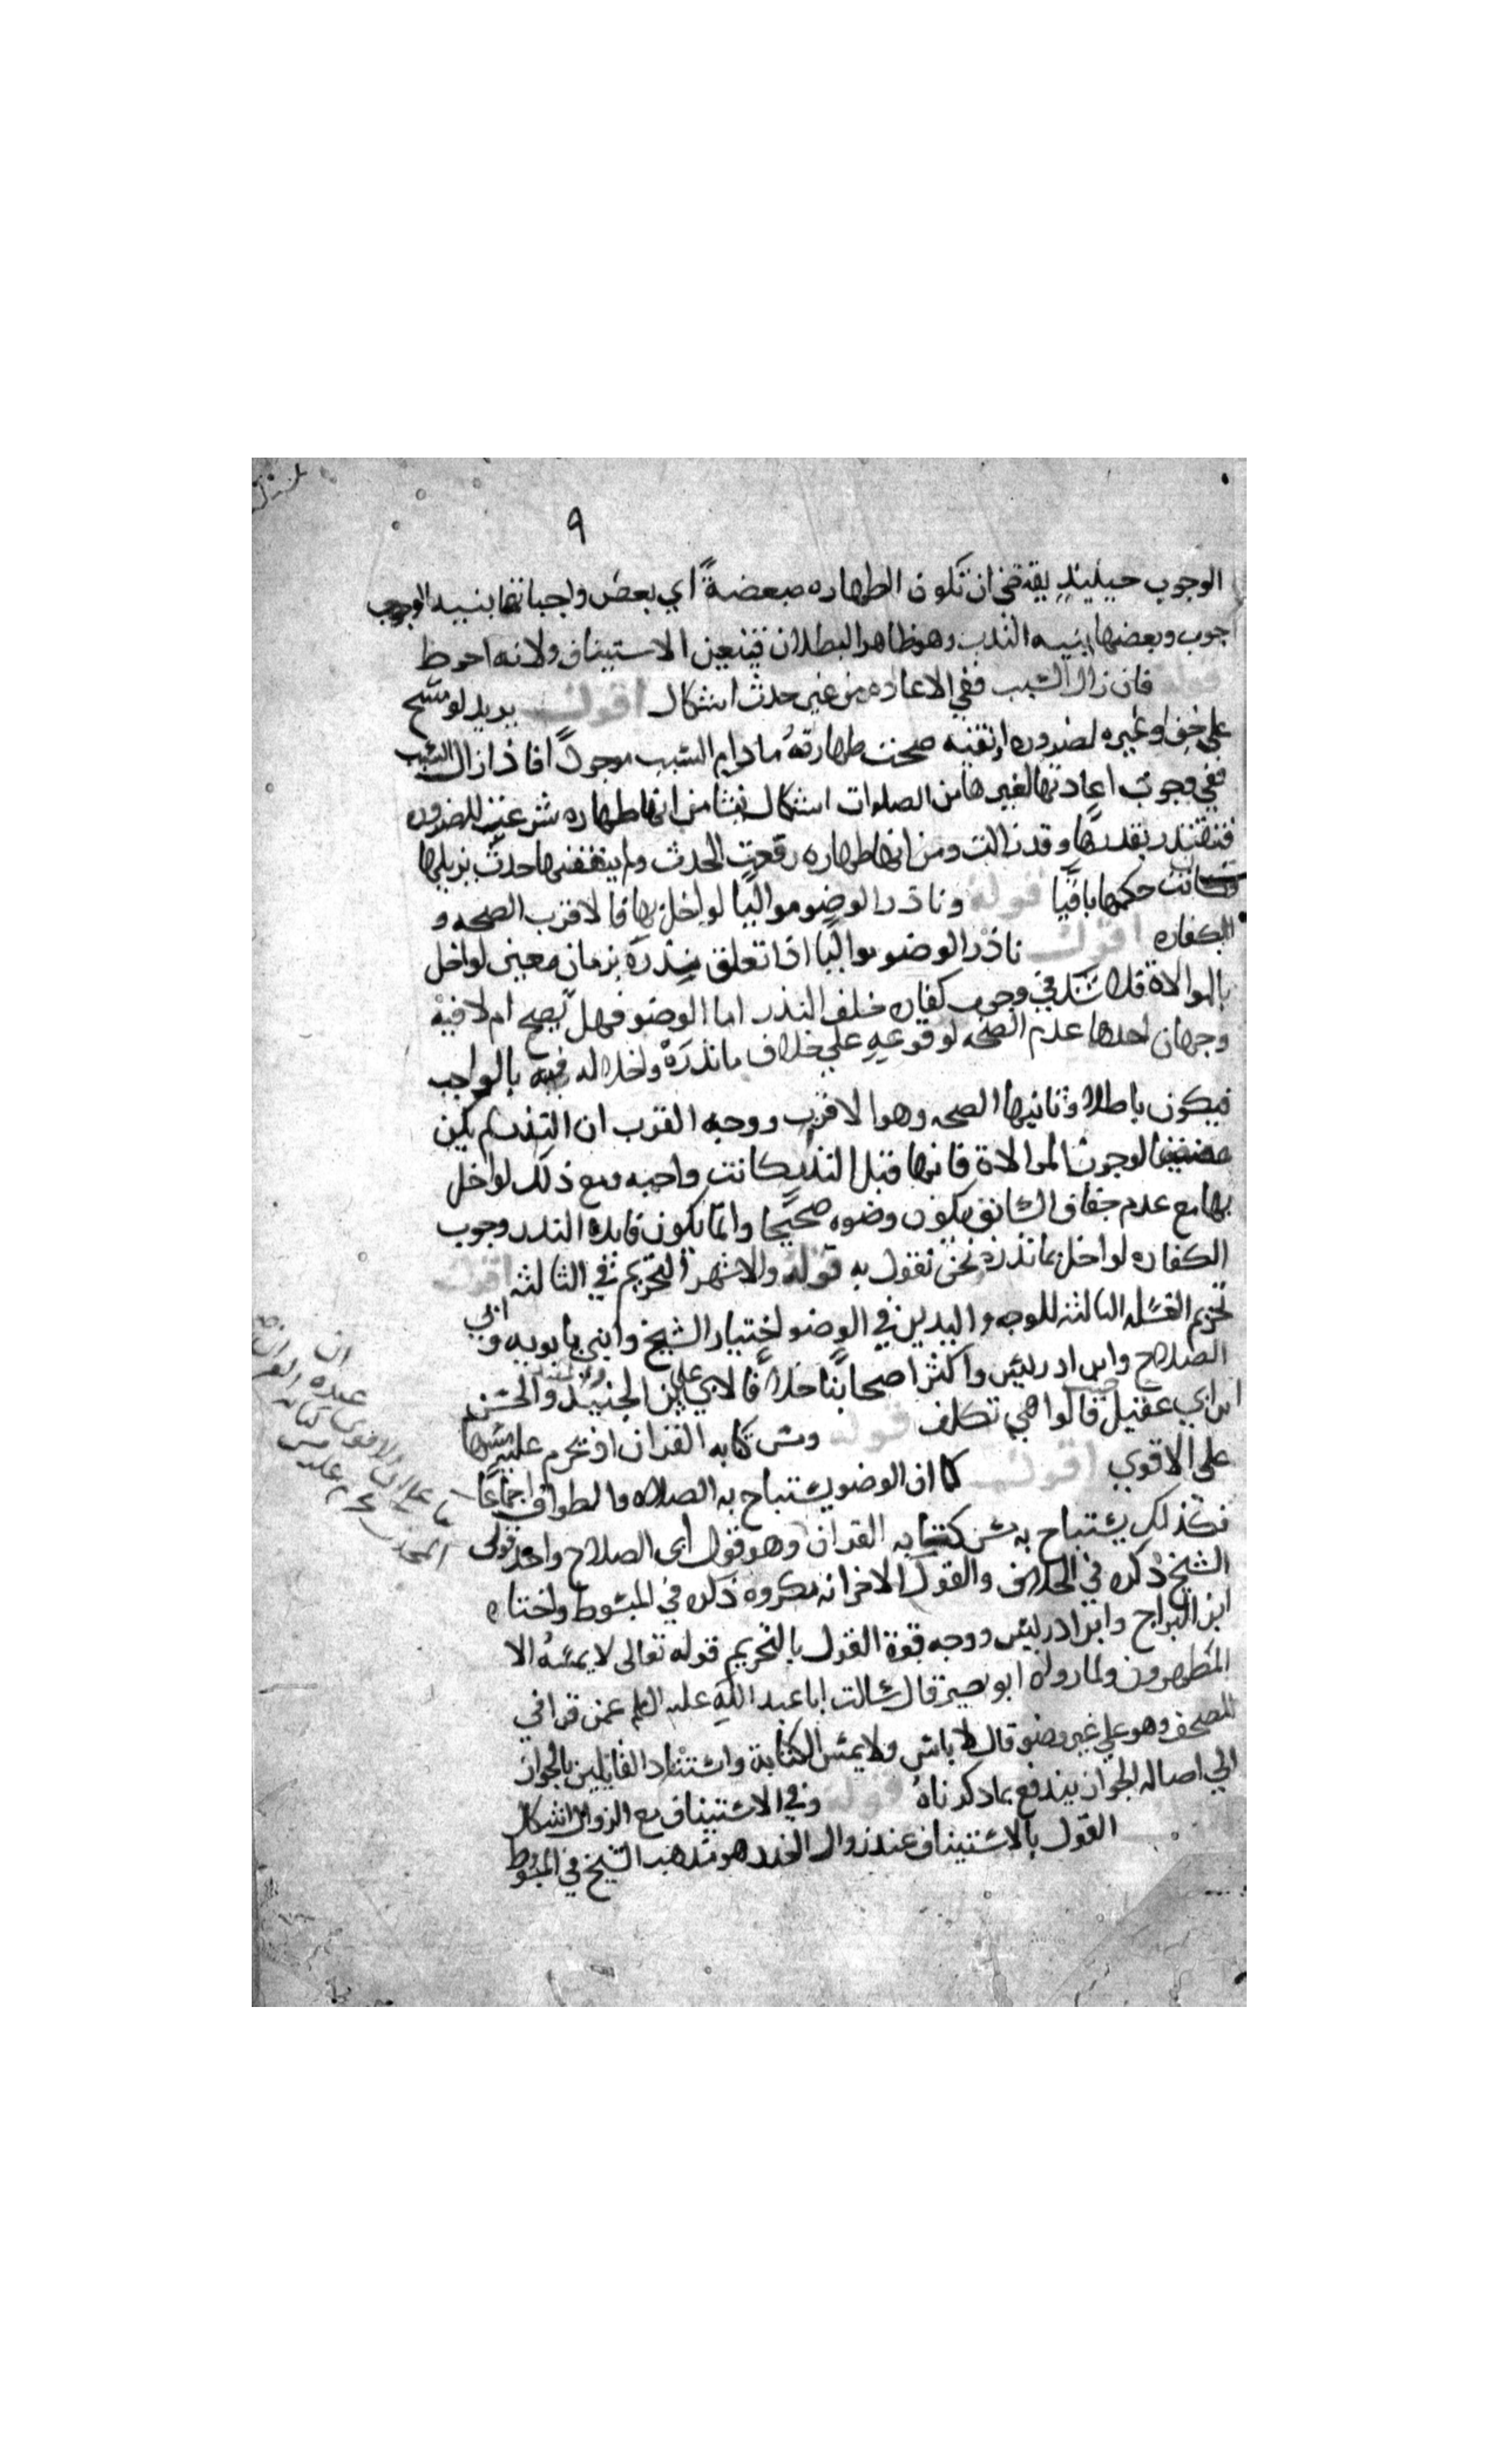 ٩
الوجوب حينيذ يقتضي ان تكون الطهاره مبعضةً اي بعض واجباتها بنيه الوجوب
وبعضها بنيه الندب وهو ظاهر البطلان فتعين الاستيناف ولانه احوط
قوله فان زال السبب ففي الاعاده من غير حدث اشكال اقول يريد لو مسح
علي خف او غيره لضروره او تقيه صحت طهارته مادام السبب موجودًا فاذا زال السبب
ففي وجوب اعادتها لغيرها من الصلوات اشكال ينشا من انها طهاره شرعت للضروره
فتتقدر بقدرها وقد زالت ومن انها طهاره رفعت الحدث ولم ينقضها حدث يزيلها
فكانت حكمها باقيًا قوله وناذر الوضو مواليًا لو اخل بها فالاقرب الصحه و
الكفاره اقول ناذر الوضو مواليًا اذا تعلق نذره بزمان معين لو اخل
بالموالاة فلا شك في وجوب كفاره خلف النذر اما الوضو فهل يصح ام لا فيه
وجهان احدها عدم الصحه لوقوعه علي خلاف مانذره ولاخلاله فيه بالواجب
فيكون باطلا وثانيها الصحه وهو الاقرب ووجه القرب ان النذر لم يكن
مقتضيا لوجوب الموالاة فانها قبل النذر كانت واجبه ومع ذلك لو اخل
بها مع عدم جفاف السابق يكون وضوه صحيحا وانما يكون فايده النذر وجوب
الكفاره لو اخل بما نذره نحن نقول به قوله والاشهر التحريم في الثالثه اقول
تحريم الغسله الثالثه للوجه واليدين في الوضو اختيار الشيخ وابني بابويه وابي
الصلاح وابن ادريس واكثر اصحابنا خلافًا لابي علي بن الجنيد والحسن
ابن ابي عقيل قالوا هي تكلف قوله ومس كتابه القران اذ يحرم عليه مسها
علي الاقوي اقول كما ان الوضو يستباح به الصلاه والطواف اجماعًا
فكذلك يستباح به مس كتابه القران وهو قول ابي الصلاح واحد قولي
الشيخ ذكره في الخلاف والقول الاخر انه مكروه ذكره في المبسوط واختاره
ابن البراج وابن ادريس ووجه قوة القول بالتحريم قوله تعالى لا يمسّهُ الا
المطهرون ولما رواه ابو بصير قال سالت ابا عبد الله عليه السلم عمن قرا في
المصحف وهو علي غير وضو قال لا باس ولا يمس الكتابة واستناد القايلين بالجواز
الي اصاله الجواز يندفع بما ذكرناهُ قوله وفي الاستيناف مع الزوال اشكال
القول بالاستيناف عند زوال العذر هو مذهب الشيخ في المبسوط